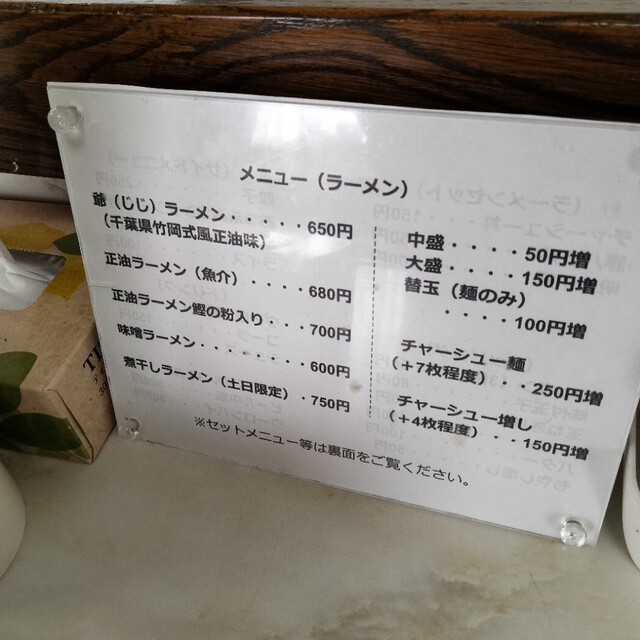 メニュー（ラーメン）
爺（じじ）ラーメン・・・・・650円
（千葉県竹岡式風正油味）
正油ラーメン（魚介）・・・・680円
正油ラーメン鰹の粉入り・・・700円
味噌ラーメン・・・・・・・・600円
煮干しラーメン（土日限定）・750円
中盛・・・・50円増
大盛・・・・150円増
替玉（麺のみ）
・・・・100円増
チャーシュー麺
（+7枚程度）・・250円増
チャーシュー増し
（+4枚程度）・・150円増
※セットメニュー等は裏面をご覧ください。